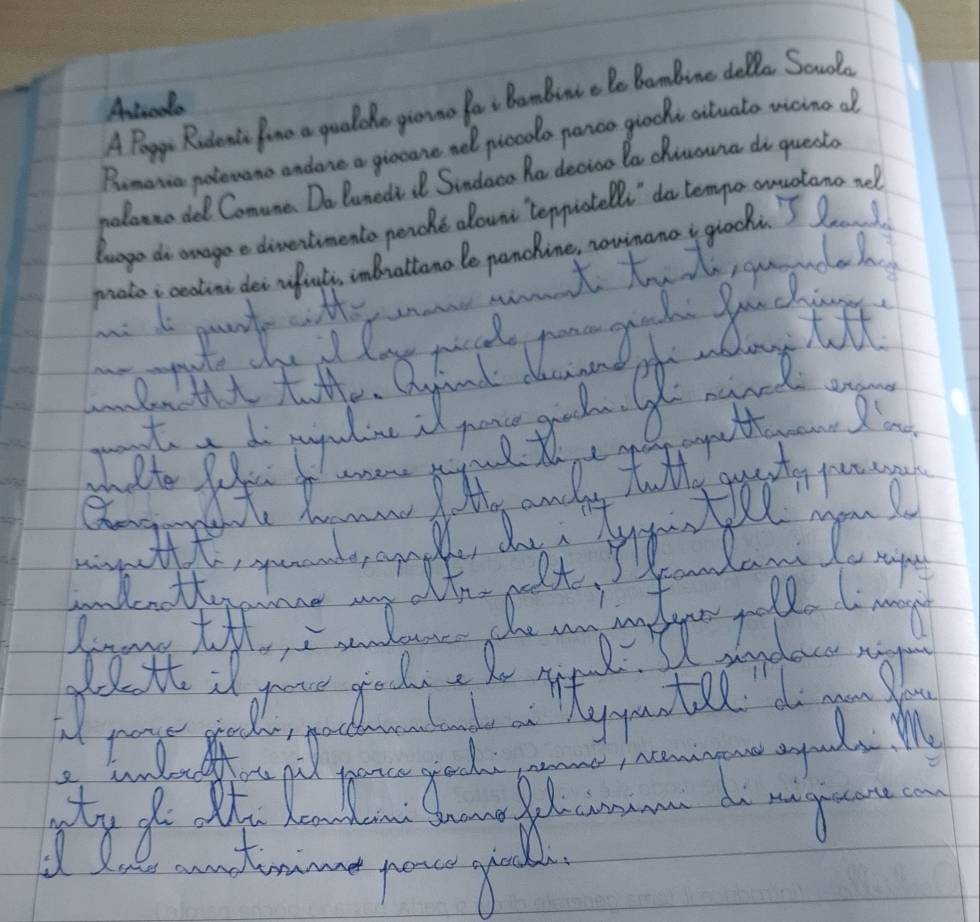 Articolo
A Poggi Ridenti fino a qualche giorno fa i bambini e le bambine della Scuola
Primaria potevano andare a giocare nel piccolo parco giochi situato vicino al
palazzo del Comune. Da lunedì il Sindaco ha deciso la chiusura di questo
luogo di svago e divertimento perché alcuni "teppistelli" da tempo svuotano nel
prato i cestini dei rifiuti, imbrattano le panchine, rovinano i giochi. I bambi
ni di questa città erano rimasti tristi, quando han
no saputo che il loro piccolo parco giochi fu chiuso e
tutto. Quindi decisero di tutti
quanti e di ripulire il parco giochi. Gli scivoli erano
molto felici di essere ripuliti e non aspettavano l'ora.
hanno fatto anche tutto questo per essere
rispettati, sperando, anche, che i "teppistelli" non lo
un altra volta. I bambini lo ripu
lirono tutto, e che un intera palla di
il parco giochi e lo ripulì. Il sindaco riaprì
il parco giochi, raccomandando ai "teppistelli" di non
e il parco giochi, espulsi. Me
ntre gli altri bambini erano felicissimi di rigiocare con
il loro parco giochi.